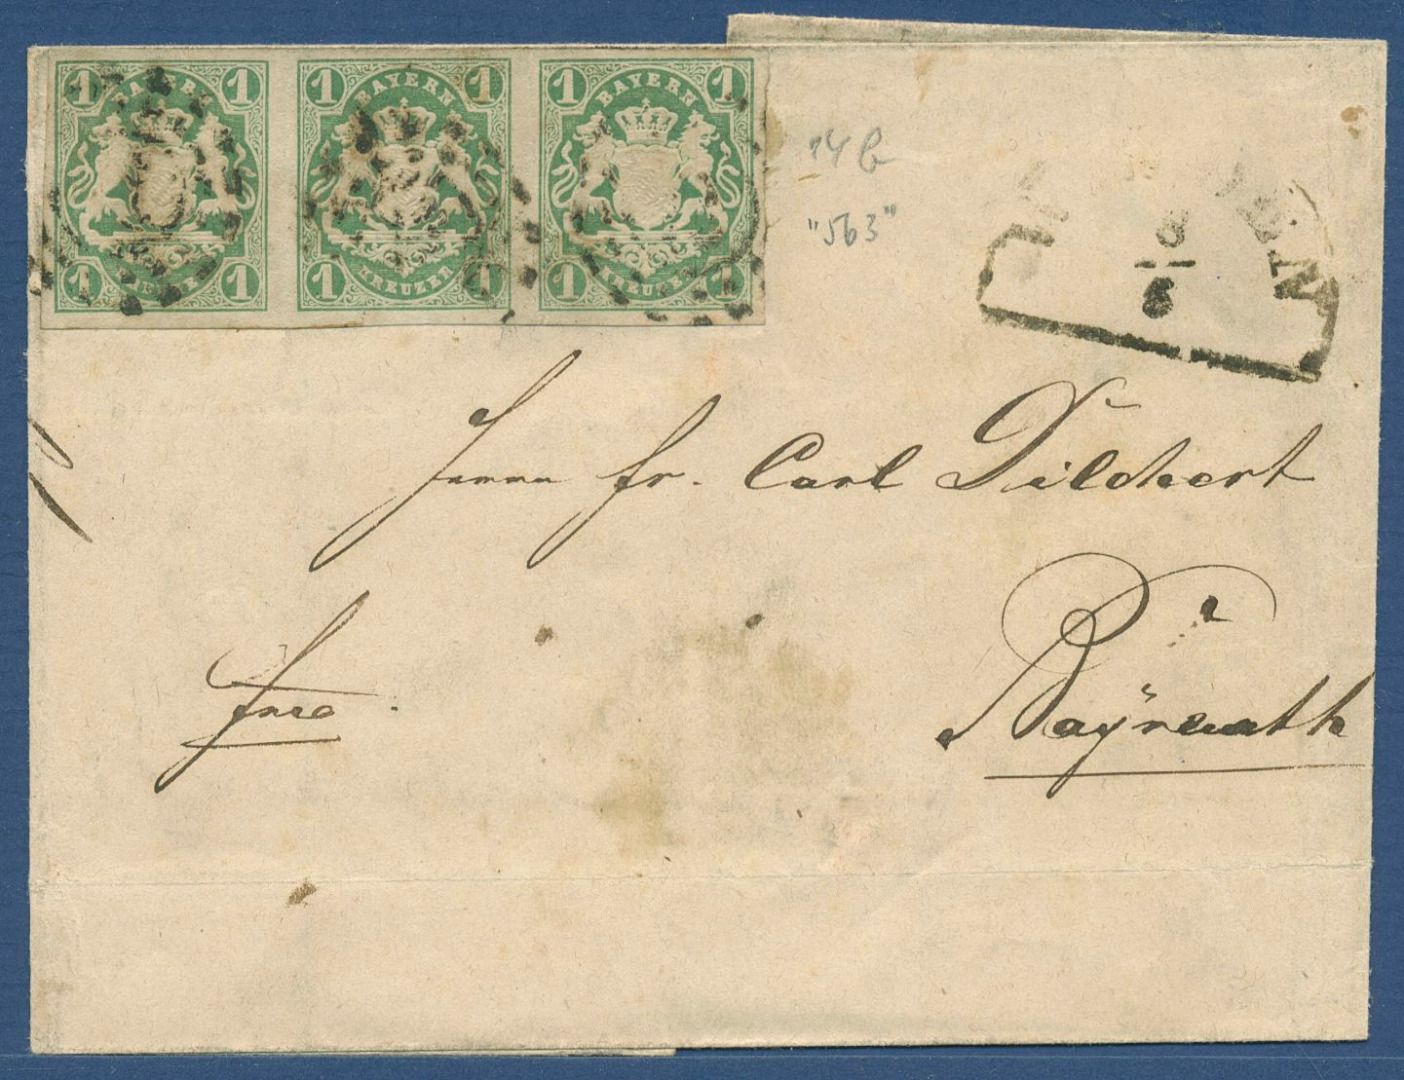 1 BAYERN 1
1 KREUZER 1
1 BAYERN 1
1 KREUZER 1
1 BAYERN 1
1 KREUZER 1
14 b
"563"
8
6
Herrn Fr. Carl Dilchert
Bayreuth
frco